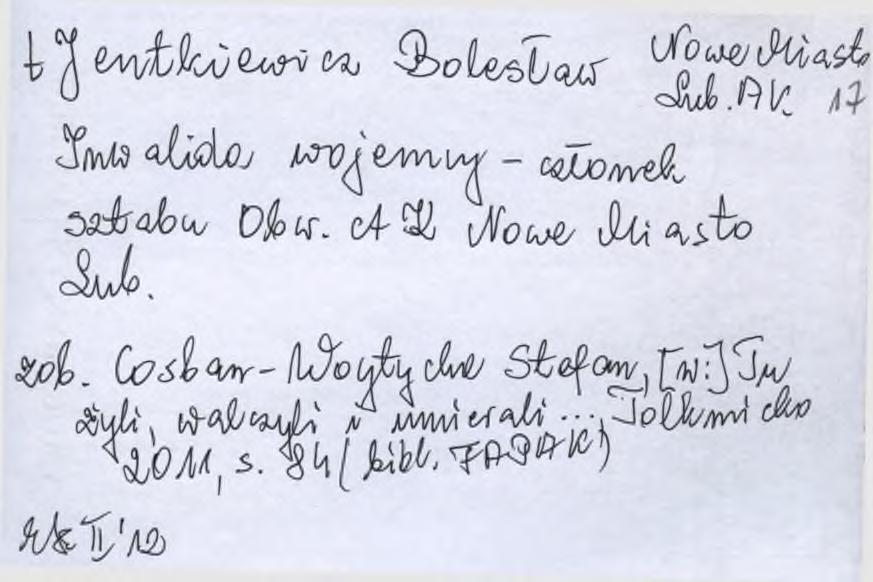 † Jentkiewicz Bolesław Nowe Miasto
Lub. AK. 17
Inwalida wojenny - członek
sztabu Obw. AK Nowe Miasto
Lub.
zob. Cosban-Woytycha Stefan, [w:] Tu
żyli, walczyli i umierali..., Tolkmicko
2011, s. 84 (bibl. FAPAK)
II '12